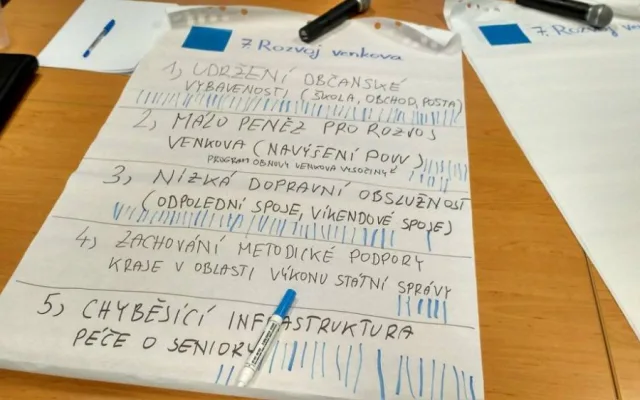 7. Rozvoj venkova
1, UDRŽENÍ OBČANSKÉ
VYBAVENOSTI (ŠKOLA, OBCHOD, POŠTA)
2, MALO PENĚZ PRO ROZVOJ
VENKOVA (NAVÝŠENÍ POVV)
PROGRAM OBNOVY VENKOVA VYSOČINY
3, NÍZKÁ DOPRAVNÍ OBSLUŽNOST
(ODPOLEDNÍ SPOJE, VÍKENDOVÉ SPOJE)
4, ZACHOVÁNÍ METODICKÉ PODPORY
KRAJE V OBLASTI VÝKONU STÁTNÍ SPRÁVY
5, CHYBĚJÍCÍ INFRASTRUKTURA
PÉČE O SENIORY
7. Rozvoj venkova